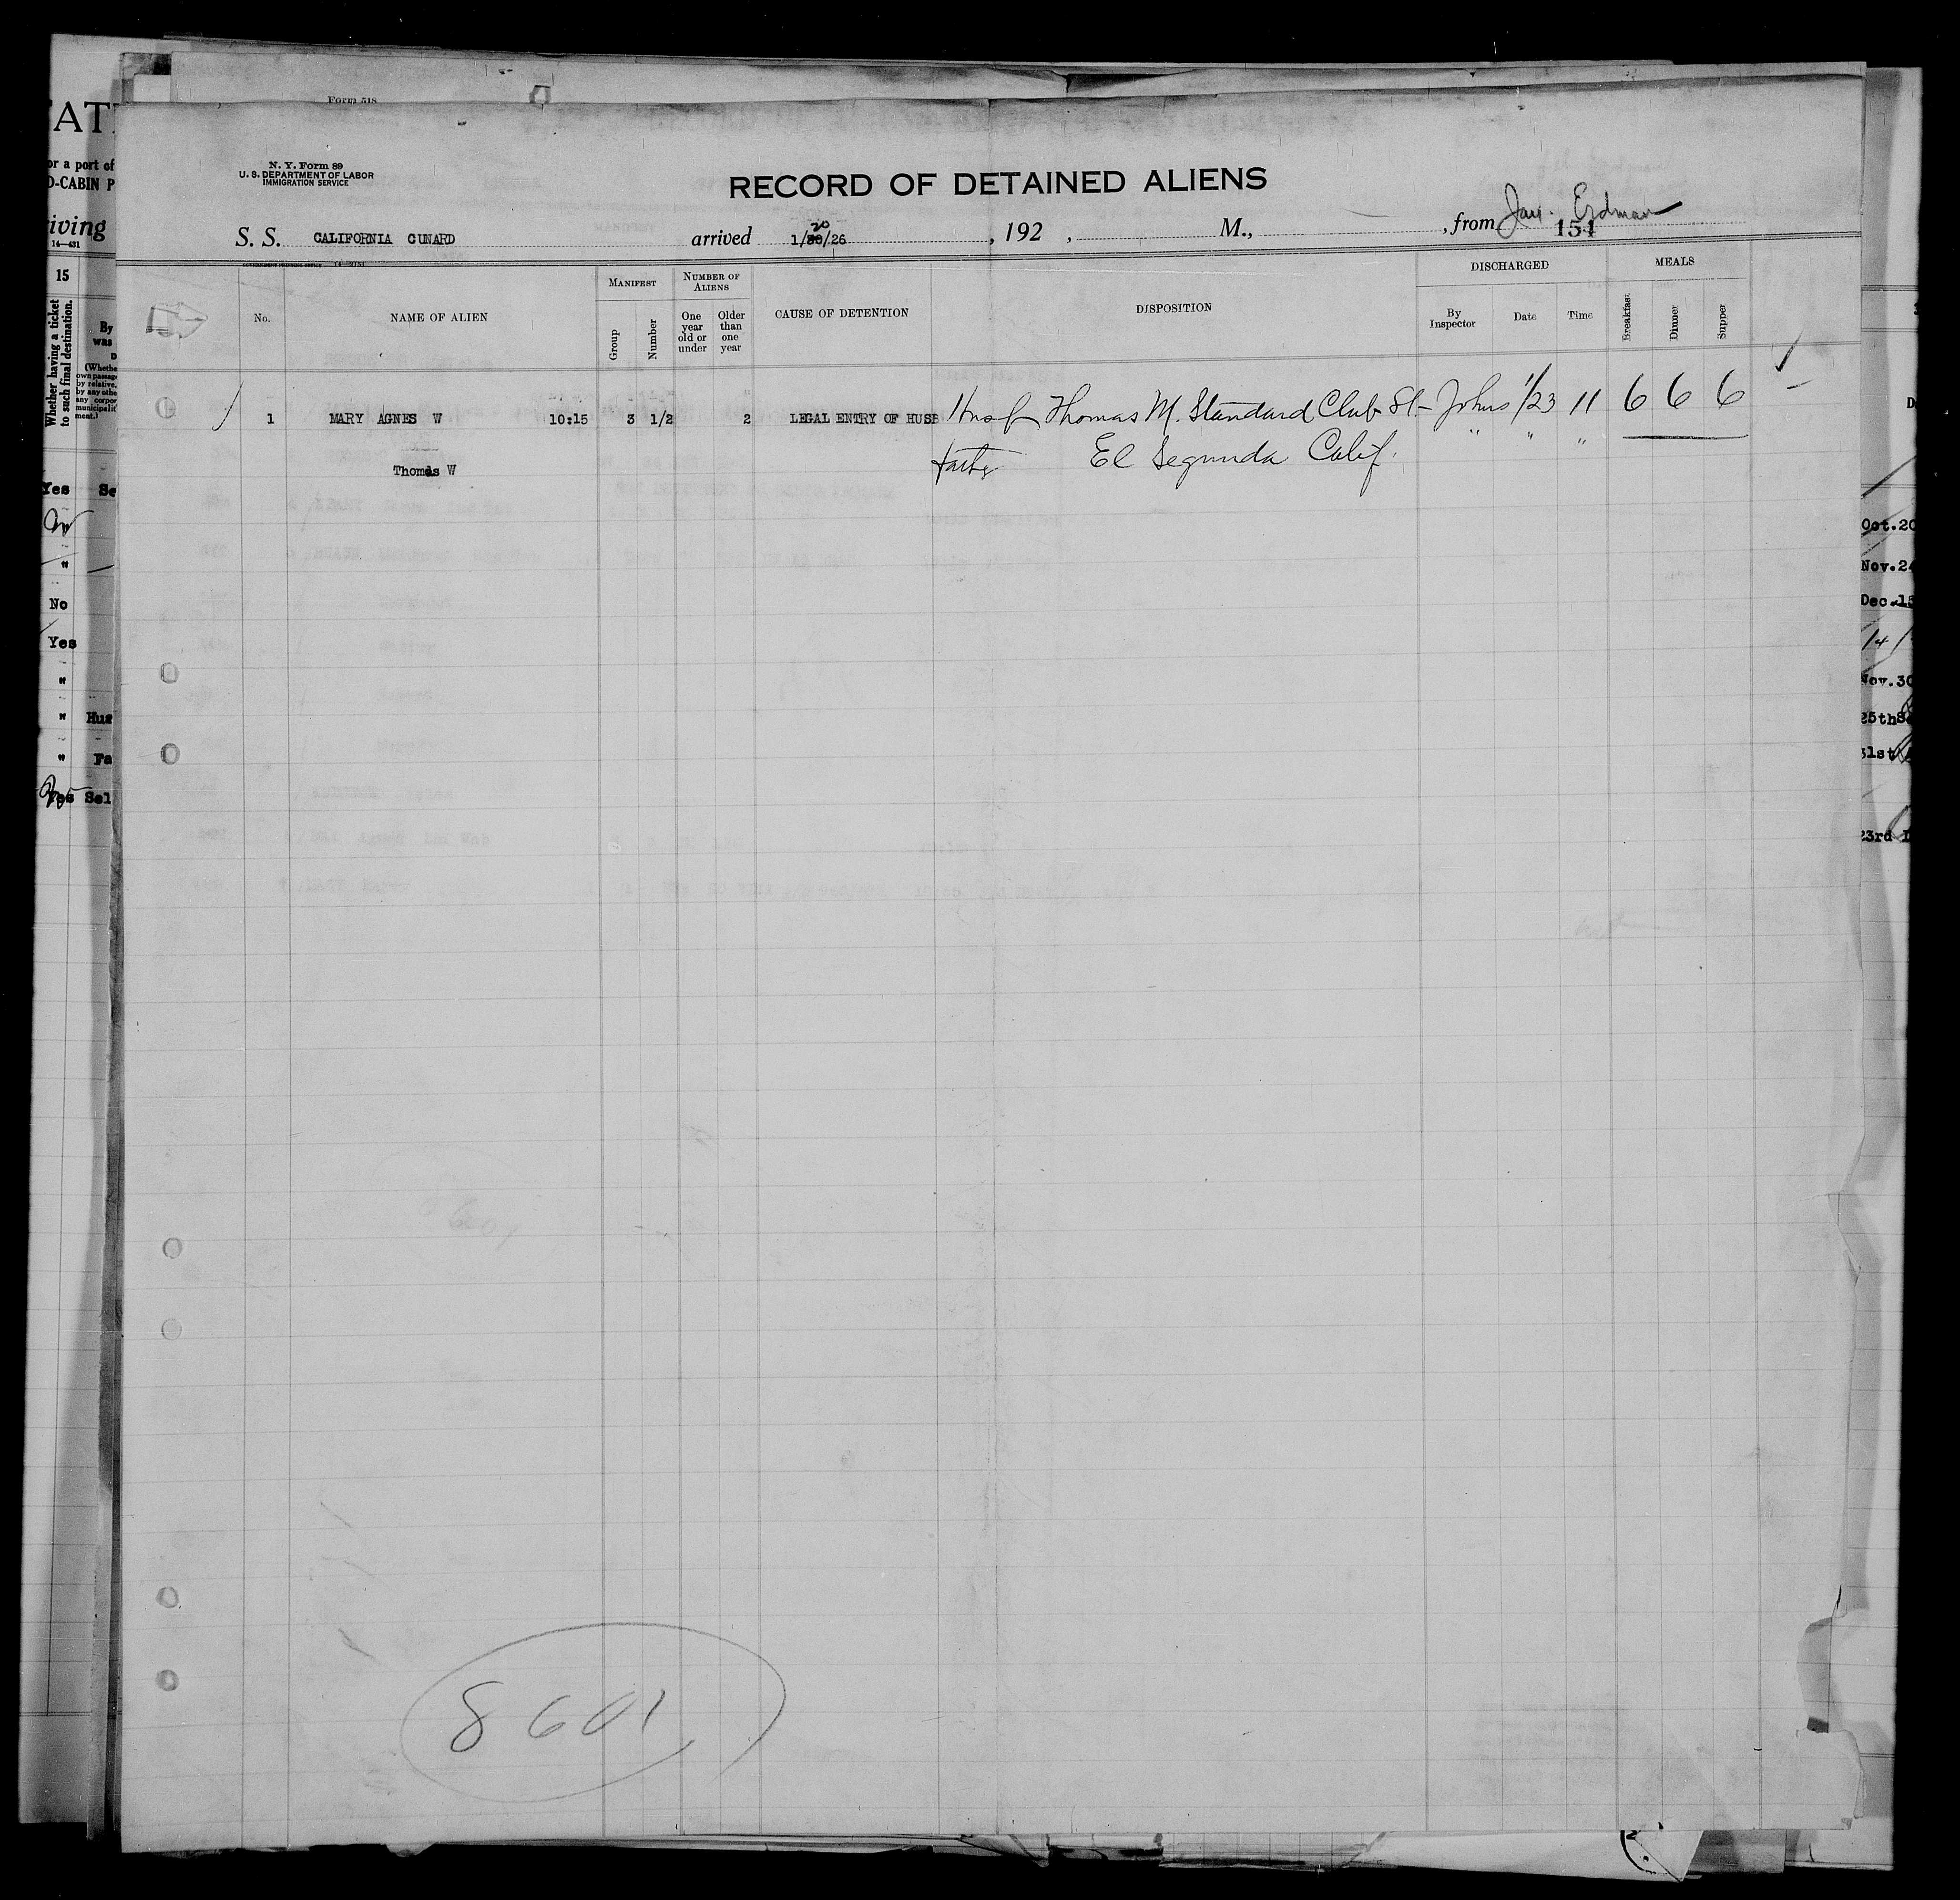 Form 518
N. Y. Form 89
U. S. DEPARTMENT OF LABOR
IMMIGRATION SERVICE
RECORD OF DETAINED ALIENS
S. S. CALIFORNIA CUNARD arrived 1/20/26, 192 , M., , from
Erdman
151
DISCHARGED MEALS
MANIFEST NUMBER OF ALIENS
No. NAME OF ALIEN Group Number One year old or under Older than one year CAUSE OF DETENTION DISPOSITION By Inspector Date Time Breakfast Dinner Supper
1 MARY AGNES W 10:15 3 1/2 2 LEGAL ENTRY OF HUSB Thomas M. Standard Club St- Johns 1/23 11 6 6 6
Thomas W El Segunda Calif. " " "
8601
ATE
or a port of
D-CABIN P
iving
14—431
15
Whether having a ticket to such final destination.
By
was
(Whethe
own passag
by relative,
by any othe
any corpor
municipalit
ment.)
Yes Se
"
No
Yes
"
" Hus
" Fa
Yes Sel
Oct.20
Nov.24
Dec.15
14/
Nov.30
25th
31st
23rd